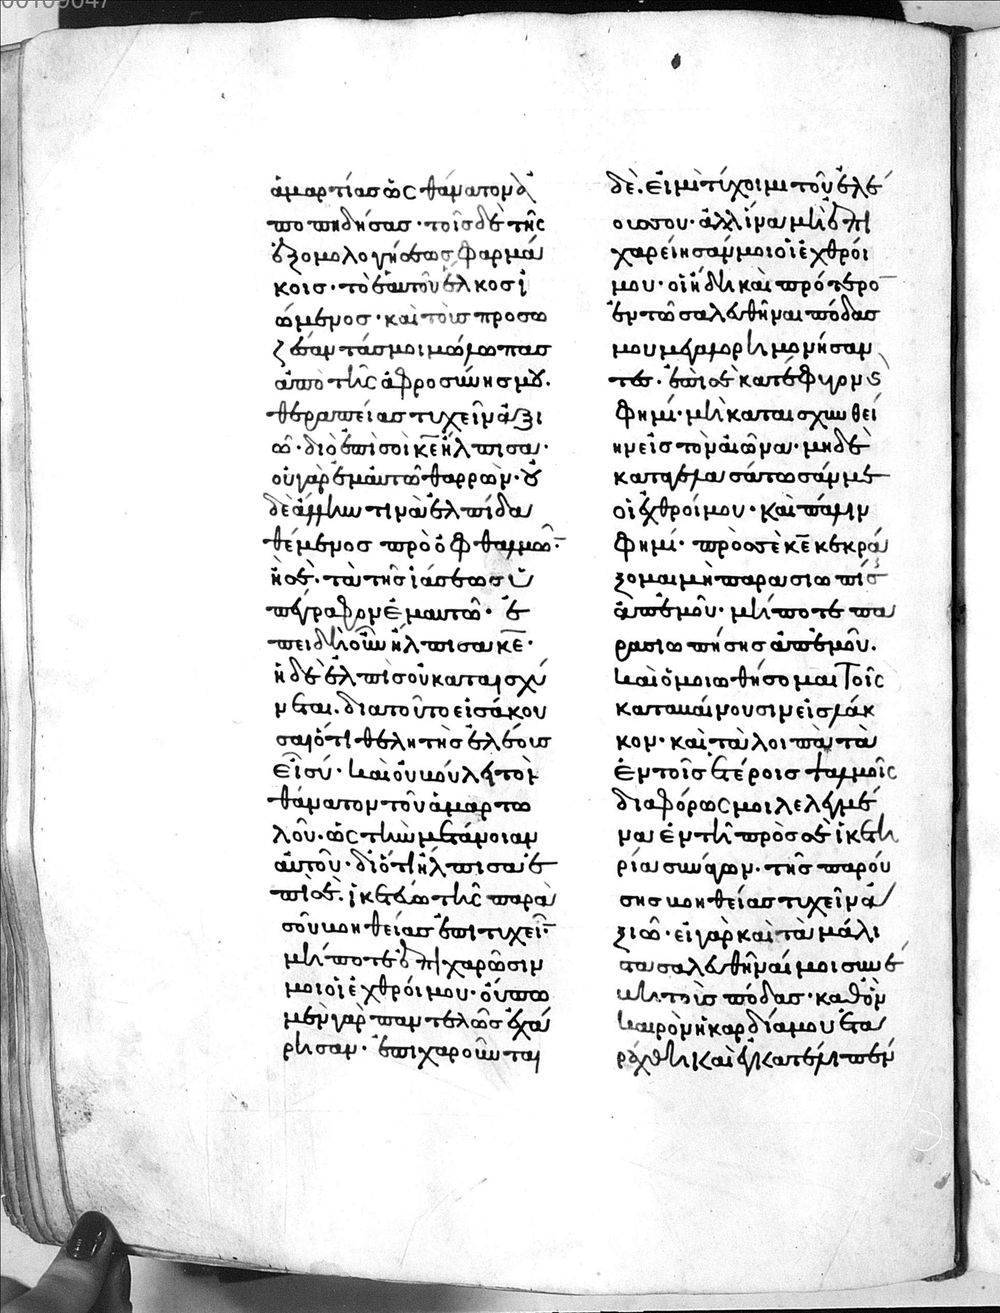 ἁμαρτίας ὡς θάνατον ἀ
ποπηδήσας· τοῖς δὲ τῆς
ἐξομολογήσεως φαρμά
κοις· τὸ ἑαυτοῦ ἕλκος ἰ
ώμενος· καὶ τοῖς προσω
ζέσαντάς μοι μώλωπας
ἀπὸ τῆς ἀφροσύνης μου.
θεραπείας τυχεῖν ἀξι
ῶ· διὸ ἐπὶ σοὶ κε ἤλπισα·
οὐ γὰρ ἐμαυτῶ θαρρῶν· οὐ
δὲ ἄλλην τινὰ ἐλπίδα
θέμενος πρὸ ὀφθαλμῶν·
ἢ σὲ· τὰ τῆς ἰάσεως ὑ
πέγραφον ἐμαυτῶ· ἐ
πειδὴ οὖν ἤλπισα κε·
ἡ δὲ ἐλπὶς οὐ καταισχύ
νεται. διατοῦτο εἰσάκου
σαι ὅτι θελητὴς ἐλέους
εἶ σύ· καὶ οὐ βούλη τὸν
θάνατον τοῦ ἁμαρτω
λοῦ· ὡς τὴν μετάνοιαν
αὐτοῦ· διότι ἤλπισα ἐ
πὶ σέ. ἱκετεύω τῆς παρὰ
σοῦ βοηθείας ἐπιτυχεῖν·
μήποτε ἐπιχαρῶσιν
μοι οἱ ἐχθροί μου· οὔπω
μὲν γὰρ παντελῶς ἐχά
ρησαν· ἐπιχαροῦνται
δὲ. εἰ μὴ τύχοιμι τοῦ ἐλέ
ους σου· ἀλλ ἵνα μὴ ἐπι
χαρείησάν μοι οἱ ἐχθροί
μου· οἱ ἤδη καὶ πρότερον
ἐν τῶ σαλευθῆναι πόδας
μου μεγαλορημονήσαν
τες· ἐπὶ σὲ κατέφυγον
φημί· μὴ καταισχυνθεί
ην εἰς τὸν αἰῶνα· μηδὲ
καταγελασάτωσάν με
οἱ ἐχθροί μου· καὶ πάλιν
φημί· πρὸς σὲ κε κεκρά
ξομαι μὴ παρασιωπήσης
ἀπ ἐμοῦ· μήποτε πα
ρασιωπήσης ἀπ ἐμοῦ.
καὶ ὁμοιωθήσομαι τοῖς
καταβαίνουσιν εἰς λάκ
κον· καὶ τὰ λοιπὰ τὰ
ἐν τοῖς ἑτέροις ψαλμοῖς
διαφόρως μοι λελεγμέ
να ἐν τῆ πρὸς σὲ ἱκετη
ρία συνάγων· τῆς παρου
σης βοηθείας τυχεῖν ἀ
ξιῶ· εἰ γὰρ καὶ τὰ μάλι
τα σαλευθῆναί μοι συνέ
βη τοὺς πόδας· καθ ὃν
καιρὸν ἡ καρδία μου ἐτα
ράχθη καὶ ἐγκατέλιπεν